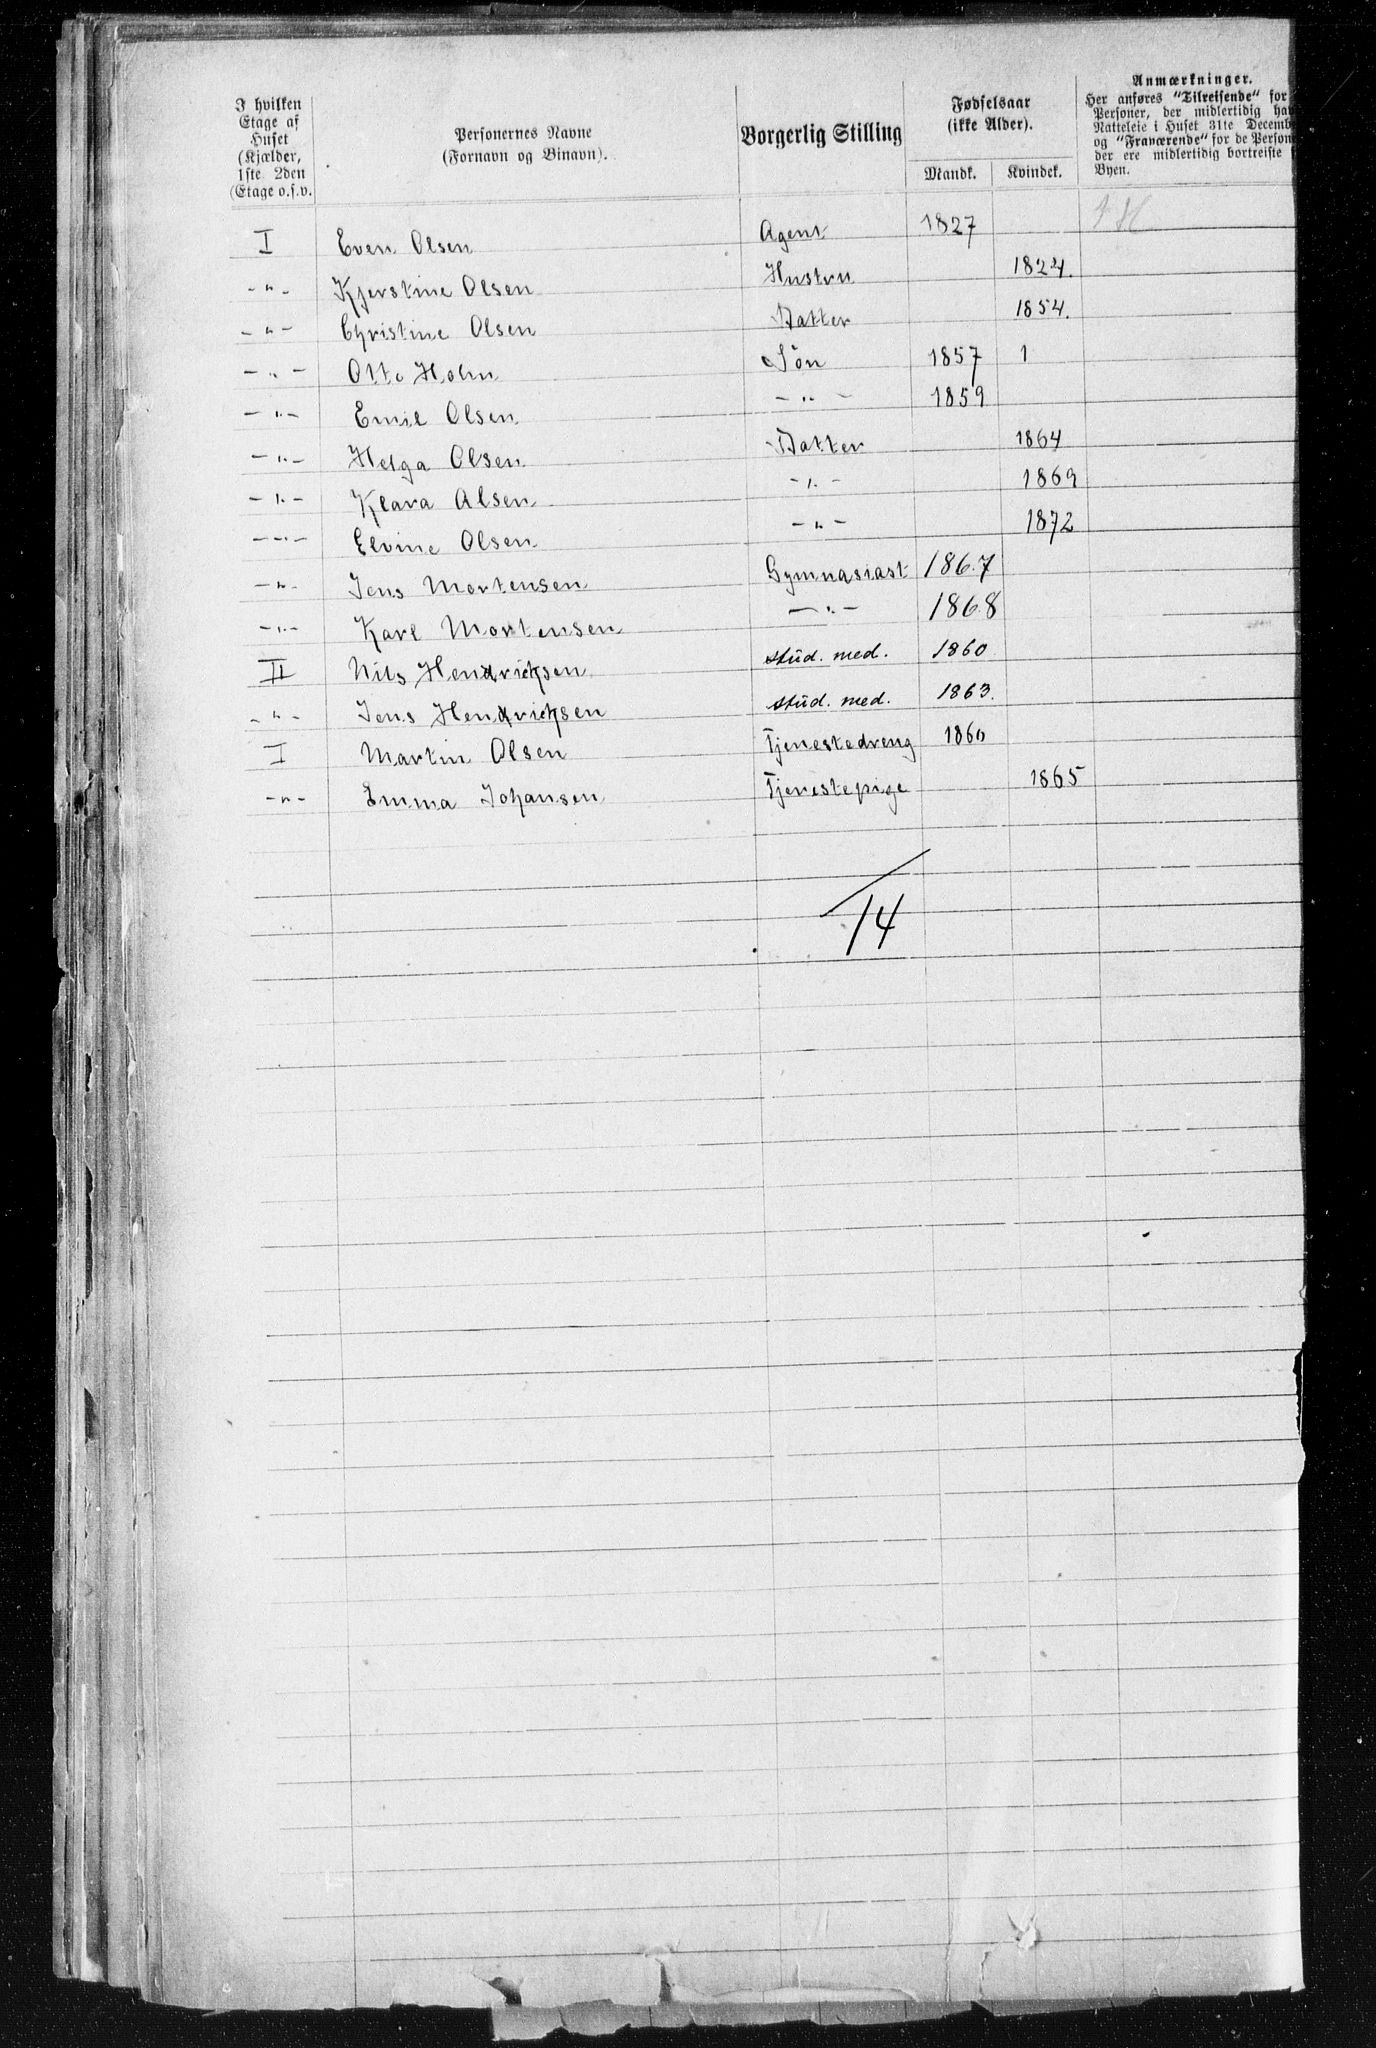 I hvilken
Etage af
Huset
(Kjælder,
1ste 2den
(Etage o.s.v.
Personernes Navne
(Fornavn og Binavn).
Borgerlig Stilling
Fødselsaar
(ikke Alder).
Mandk. Kvindek.
Anmærkninger.
Her anføres "Tilreisende" for
Personer, der midlertidig hav
Natteleie i Huset 31te Decembe
og "Fraværende" for de Person
der ere midlertidig bortreiste
Byen.
I Even Olsen Agent 1827
-"- Kjerstine Olsen Hustru 1824.
-"- Christine Olsen Datter 1854.
-"- Otto Holm Søn 1857 1
-"- Emil Olsen -"- 1859
-"- Helga Olsen Datter 1864
-"- Klara Olsen -"- 1869
-"- Elvine Olsen -"- 1872
-"- Jens Mortensen Gymnasiast 1867
-"- Karl Mortensen -"- 1868
II Nils Hendricksen stud. med. 1860
-"- Jens Hendricksen stud. med. 1863.
I Martin Olsen Tjenestedreng 1860
-"- Emma Johansen Tjenestepige 1865
14